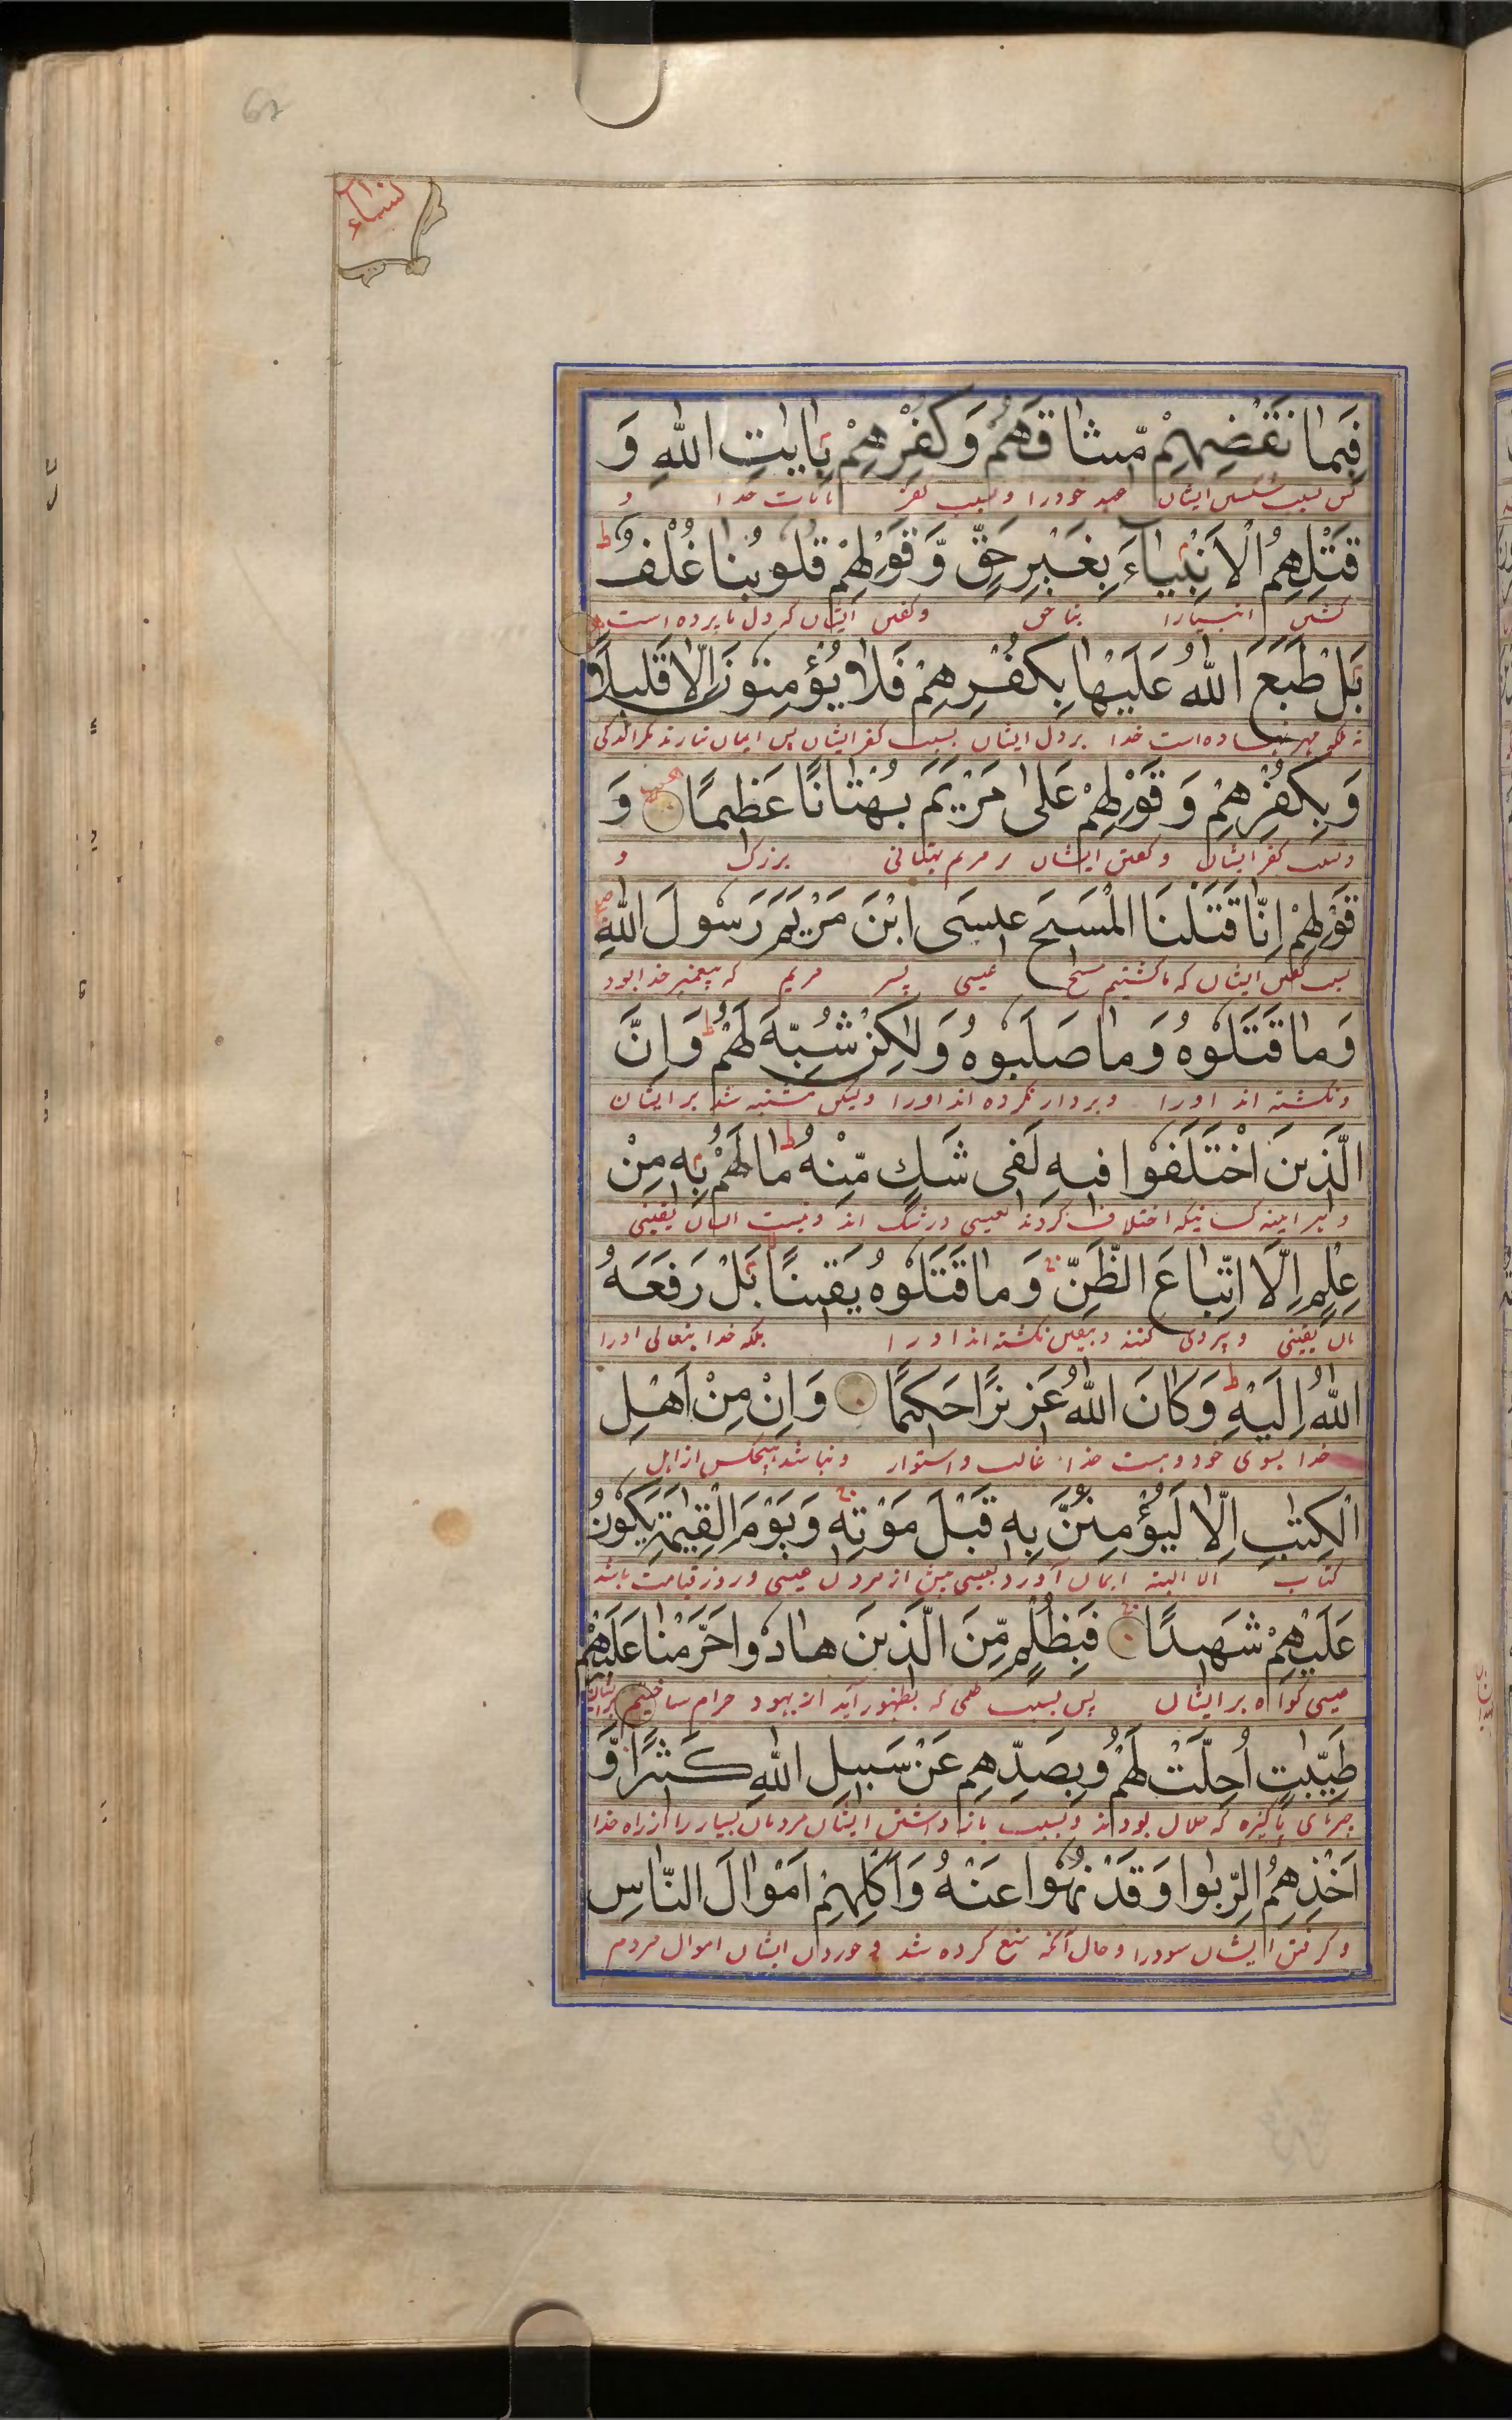 62
النساء
فَبِمَا نَقْضِهِمْ مِّيثَاقَهُمْ وَكُفْرِهِمْ بِاٰيٰتِ اللّٰهِ وَ
پس بسبب شکستن ایشان عهد خودرا و بسبب کفر بآیات خدا و
قَتْلِهِمُ الْاَنْبِيَاءَ بِغَيْرِ حَقٍّ وَّقَوْلِهِمْ قُلُوبُنَا غُلْفٌ ط
کشتن انبیارا بناحق وکفتن ایشان که دل ما پرده است
بَلْ طَبَعَ اللّٰهُ عَلَيْهَا بِكُفْرِهِمْ فَلَا يُؤْمِنُونَ اِلَّا قَلِيلًا
نه بلکه مهر نهاده است خدا بر دل ایشان بسبب کفر ایشان پس ایمان نیارند مکر اندکی
وَبِكُفْرِهِمْ وَقَوْلِهِمْ عَلٰى مَرْيَمَ بُهْتَانًا عَظِيمًا وَ
وبسبب کفر ایشان وکفتن ایشان بر مریم بهتانی بزرک و
قَوْلِهِمْ اِنَّا قَتَلْنَا الْمَسِيحَ عِيسَى ابْنَ مَرْيَمَ رَسُولَ اللّٰهِ
بسبب کفتن ایشان که ما کشتیم مسیح عیسی پسر مریم که پیغمبر خدا بود
وَمَا قَتَلُوهُ وَمَا صَلَبُوهُ وَلٰكِنْ شُبِّهَ لَهُمْ ط وَاِنَّ
ونکشته اند اورا وبردار نکرده اند اورا ولیکن مشتبه شد بر ایشان
الَّذِينَ اخْتَلَفُوا فِيهِ لَفِى شَكٍّ مِّنْهُ ط مَا لَهُمْ بِهِ مِنْ
وهر اینه کسانیکه اختلاف کردند بعیسی در شک اند ونیست یقینی
عِلْمٍ اِلَّا اتِّبَاعَ الظَّنِّ وَمَا قَتَلُوهُ يَقِينًا بَلْ رَفَعَهُ
یقینی وپیروی کنند وبیقین نکشته اند اورا بلکه خدا یتعالی اورا
اللّٰهُ اِلَيْهِ ط وَكَانَ اللّٰهُ عَزِيزًا حَكِيمًا وَاِنْ مِنْ اَهْلِ
خدا بسوی خود وهست خدا غالب واستوار ونباشد هیچکس از اهل
الْكِتٰبِ اِلَّا لَيُؤْمِنَنَّ بِهِ قَبْلَ مَوْتِهِ وَيَوْمَ الْقِيٰمَةِ يَكُونُ
کتاب الا البته ایمان آورد بعیسی پیش از مردن عیسی وروز قیامت باشد
عَلَيْهِمْ شَهِيدًا فَبِظُلْمٍ مِّنَ الَّذِينَ هَادُوا حَرَّمْنَا عَلَيْهِمْ
عیسی کواه بر ایشان پس بسبب ظلمی که بظهور آید از یهود حرام ساختیم بر ایشان
طَيِّبٰتٍ اُحِلَّتْ لَهُمْ وَبِصَدِّهِمْ عَنْ سَبِيلِ اللّٰهِ كَثِيرًا وَّ
چیزهای پاکیزه که حلال بودند وبسبب باز داشتن ایشان مردمان بسیار را از راه خدا
اَخْذِهِمُ الرِّبٰوا وَقَدْ نُهُوا عَنْهُ وَاَكْلِهِمْ اَمْوَالَ النَّاسِ
وکرفتن ایشان سودرا وحال آنکه منع کرده شد وخوردن ایشان اموال مردم